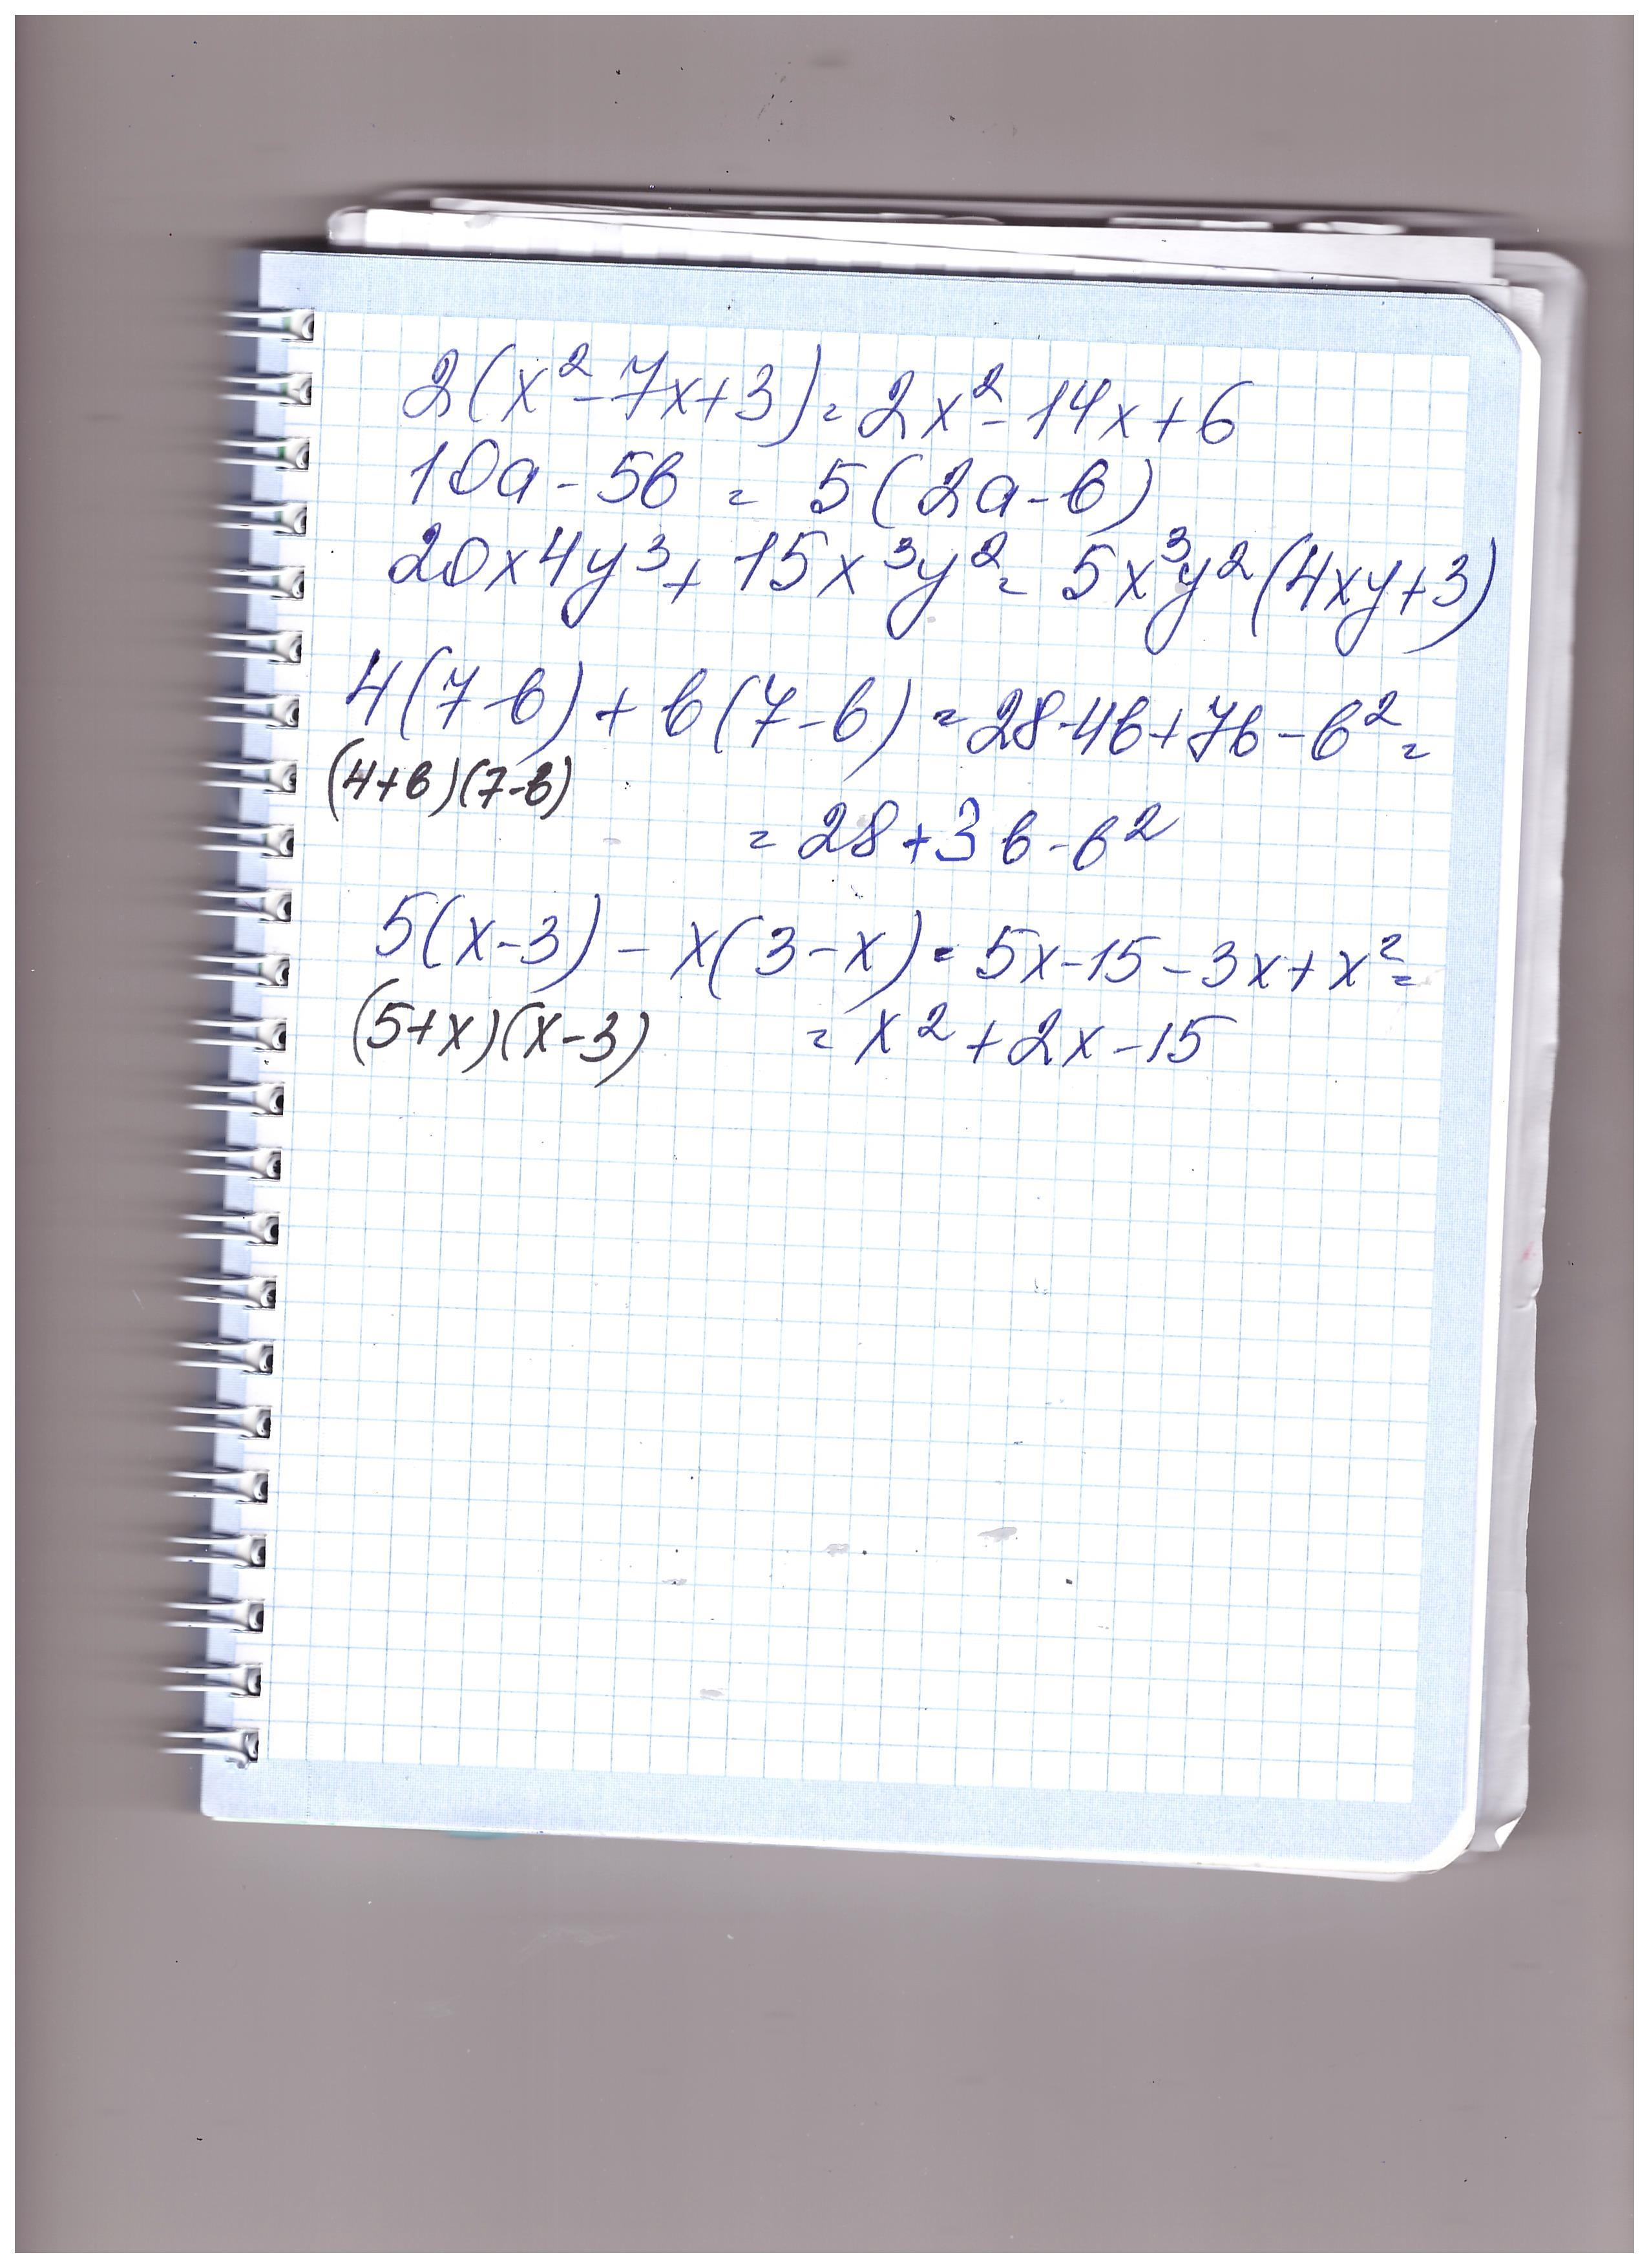 2(x²-7x+3)=2x²-14x+6
10a-5b = 5(2a-b)
20x4y³+15x³y²=5x³y²(4xy+3)
4(7-b)+b(7-b)=28-4b+7b-b²=
(4+b)(7-b)
=28+3b-b²
5(x-3)-x(3-x)=5x-15-3x+x²=
(5+x)(x-3) =x²+2x-15